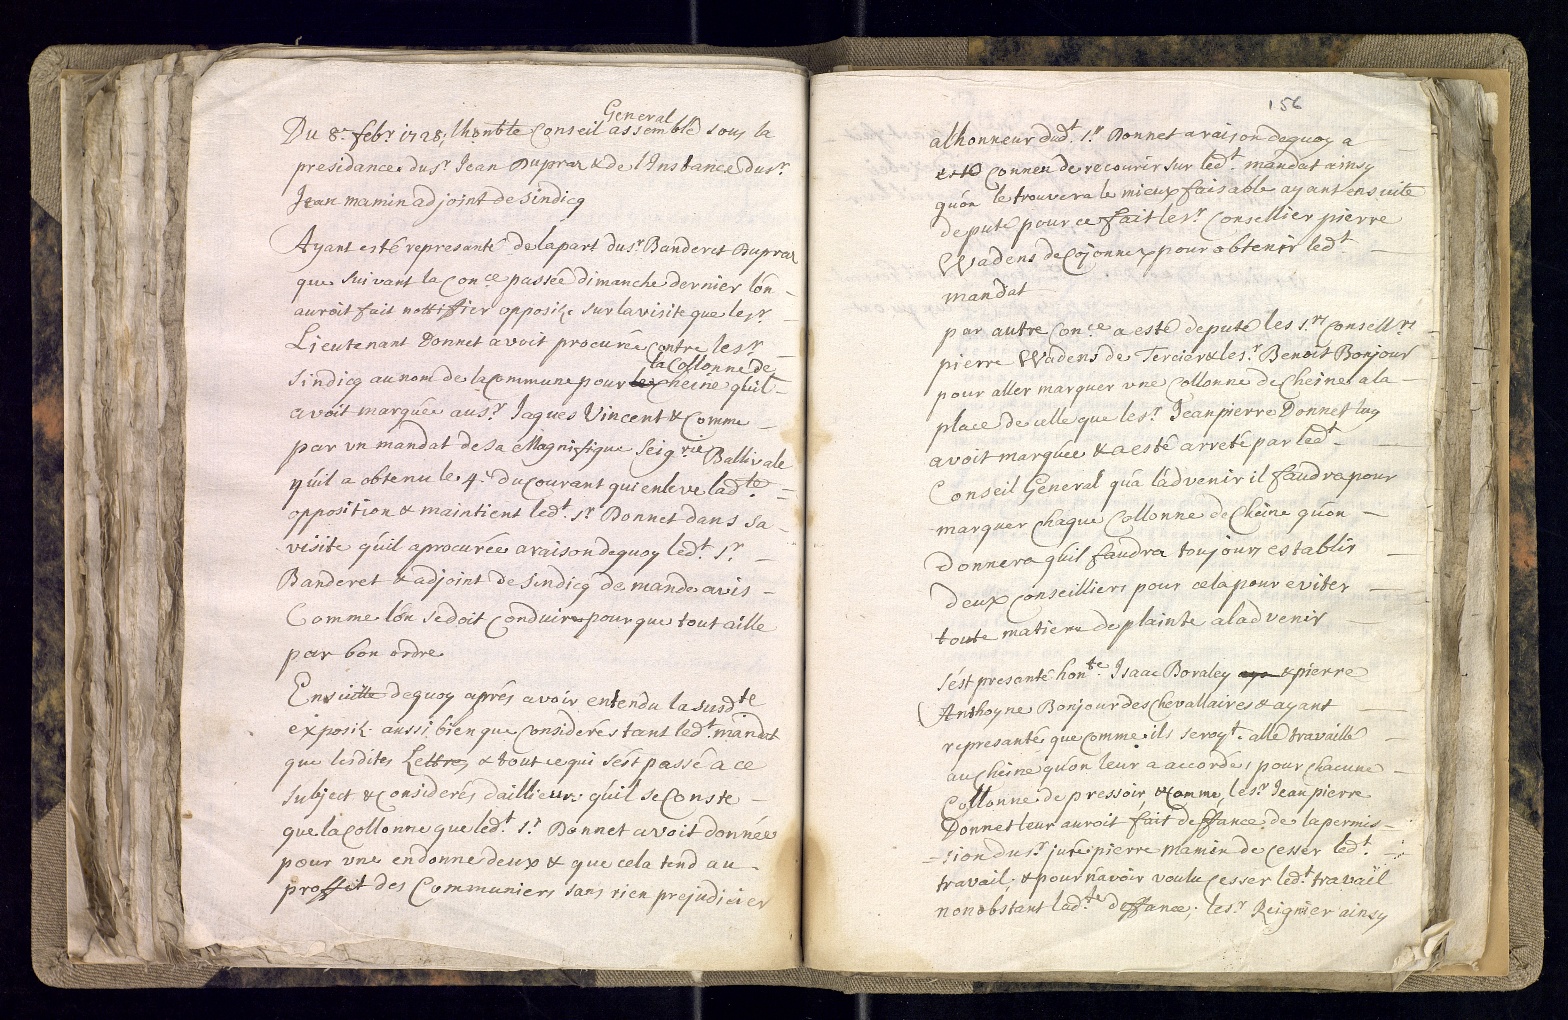 General
Du 8.e febr 1728, lhonble Conseil assemblé sous la
presidance du sr Jean Dupraz & de l'Instance du sr
Jean mamin adjoint de sindicq
Ayant esté represanté de la part du sr Banderet Dupraz
que suivant la Con.ce passée dimanche dernier lôn
auroit fait nottiffier opposi.e sur la visite que le sr
Lieutenant Donnet avoit procurée contre le sr
la Collonne de
Sindicq au nom de la Commune pour le cheine quil
avoit marquée au sr Jaques Vincent & Comme
par un mandat de sa Magniffique Seig.rie Ballivale
quil a obtenu le 4.e du Courant qui enleve lad.te
opposition & maintient led.t sr Donnet dans sa
visite quil a procurée a raison dequoy led.t sr
Banderet & adjoint de sindicq demande avis
Comme lôn se doit Conduire pour que tout aille
par bon ordre
Ensuitte dequoy aprés avoir entendu la susd.te
exposi.e aussi bien que Considerés tant led.t mandat
que lesdites Lettres & tout ce qui s'ést passé a ce
subject & considerés d'aillieurs quil se Conste
que la Collonne que led.t sr Donnet avoit donnée
pour une en donne deux & que cela tend au
proffit des Communiers sans rien prejudicier
156
alhonneur dud.t sr Donnet a raison dequoy a
esté Connen de recourir sur led.t mandat ainsy
quón le trouvera le mieux faisable ayant ensuite
deputé pour ce fait le sr Consellier pierre
Wadens de Cojonnex pour obtenir led.t
mandat
par autre Con.ce a esté deputé les srs Consell.rs
pierre Wadens de Tercier & le sr Benoit Bonjour
pour aller marquer une Collonne de Cheine a la
place de celle que le sr Jean pierre Donnet luy
avoit marquée & a esté arreté par led.t
Conseil General quá l'advenir il faudra pour
marquer chaque Collonne de Chêine quon
donnera quil faudra toujours establir
deux Conseilliers pour cela pour eviter
toute matiere de plainte a l'advenir
s'ést presanté hon.te Isaac Boraley & pierre
Anthoyne Bonjour des Chevallaires & ayant
represanté que comme ils seroy.t allé travaillé
au Cheine qu'on leur a accordés pour chacune
Collonne de pressoir & comme le sr Jean pierre
Donnet leur auroit fait deffance de la permis-
-sion du sr juré pierre Mamin de Cesser led.t
travail & pour n'avoir voulu cesser led.t travail
nonobstant lad.te deffance, le sr Reignier ainsy